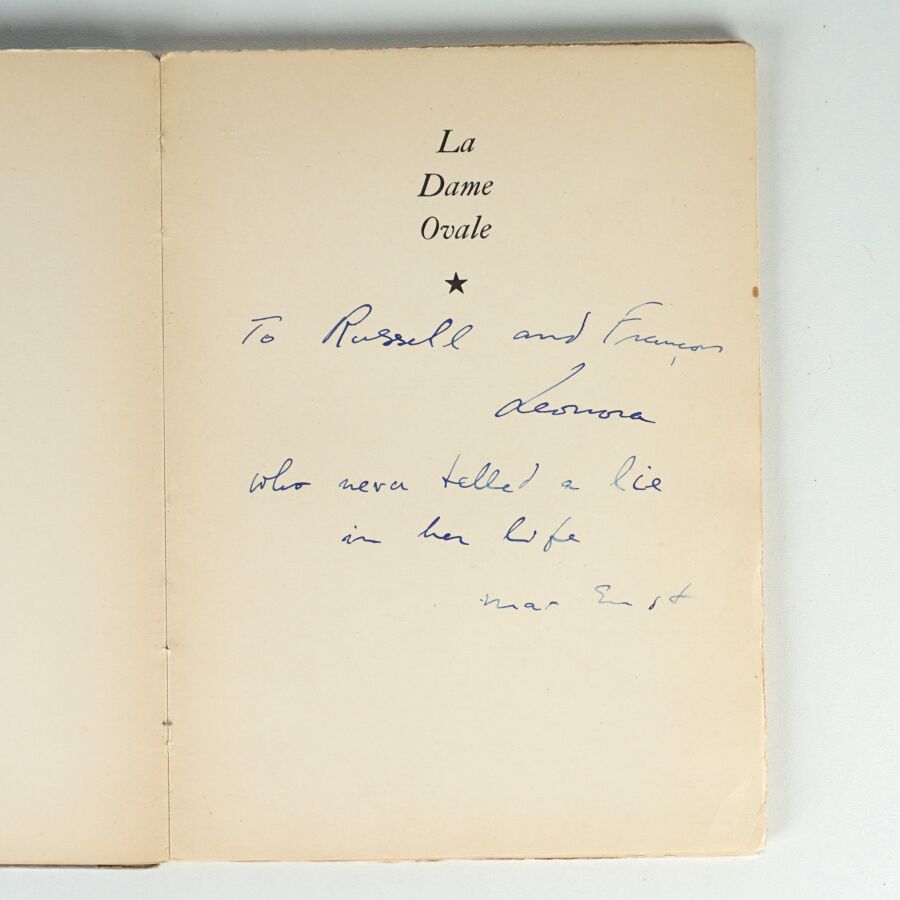 La
Dame
Ovale
To Russell and François
Leonora
who never telled a lie
in her life
max Ernst